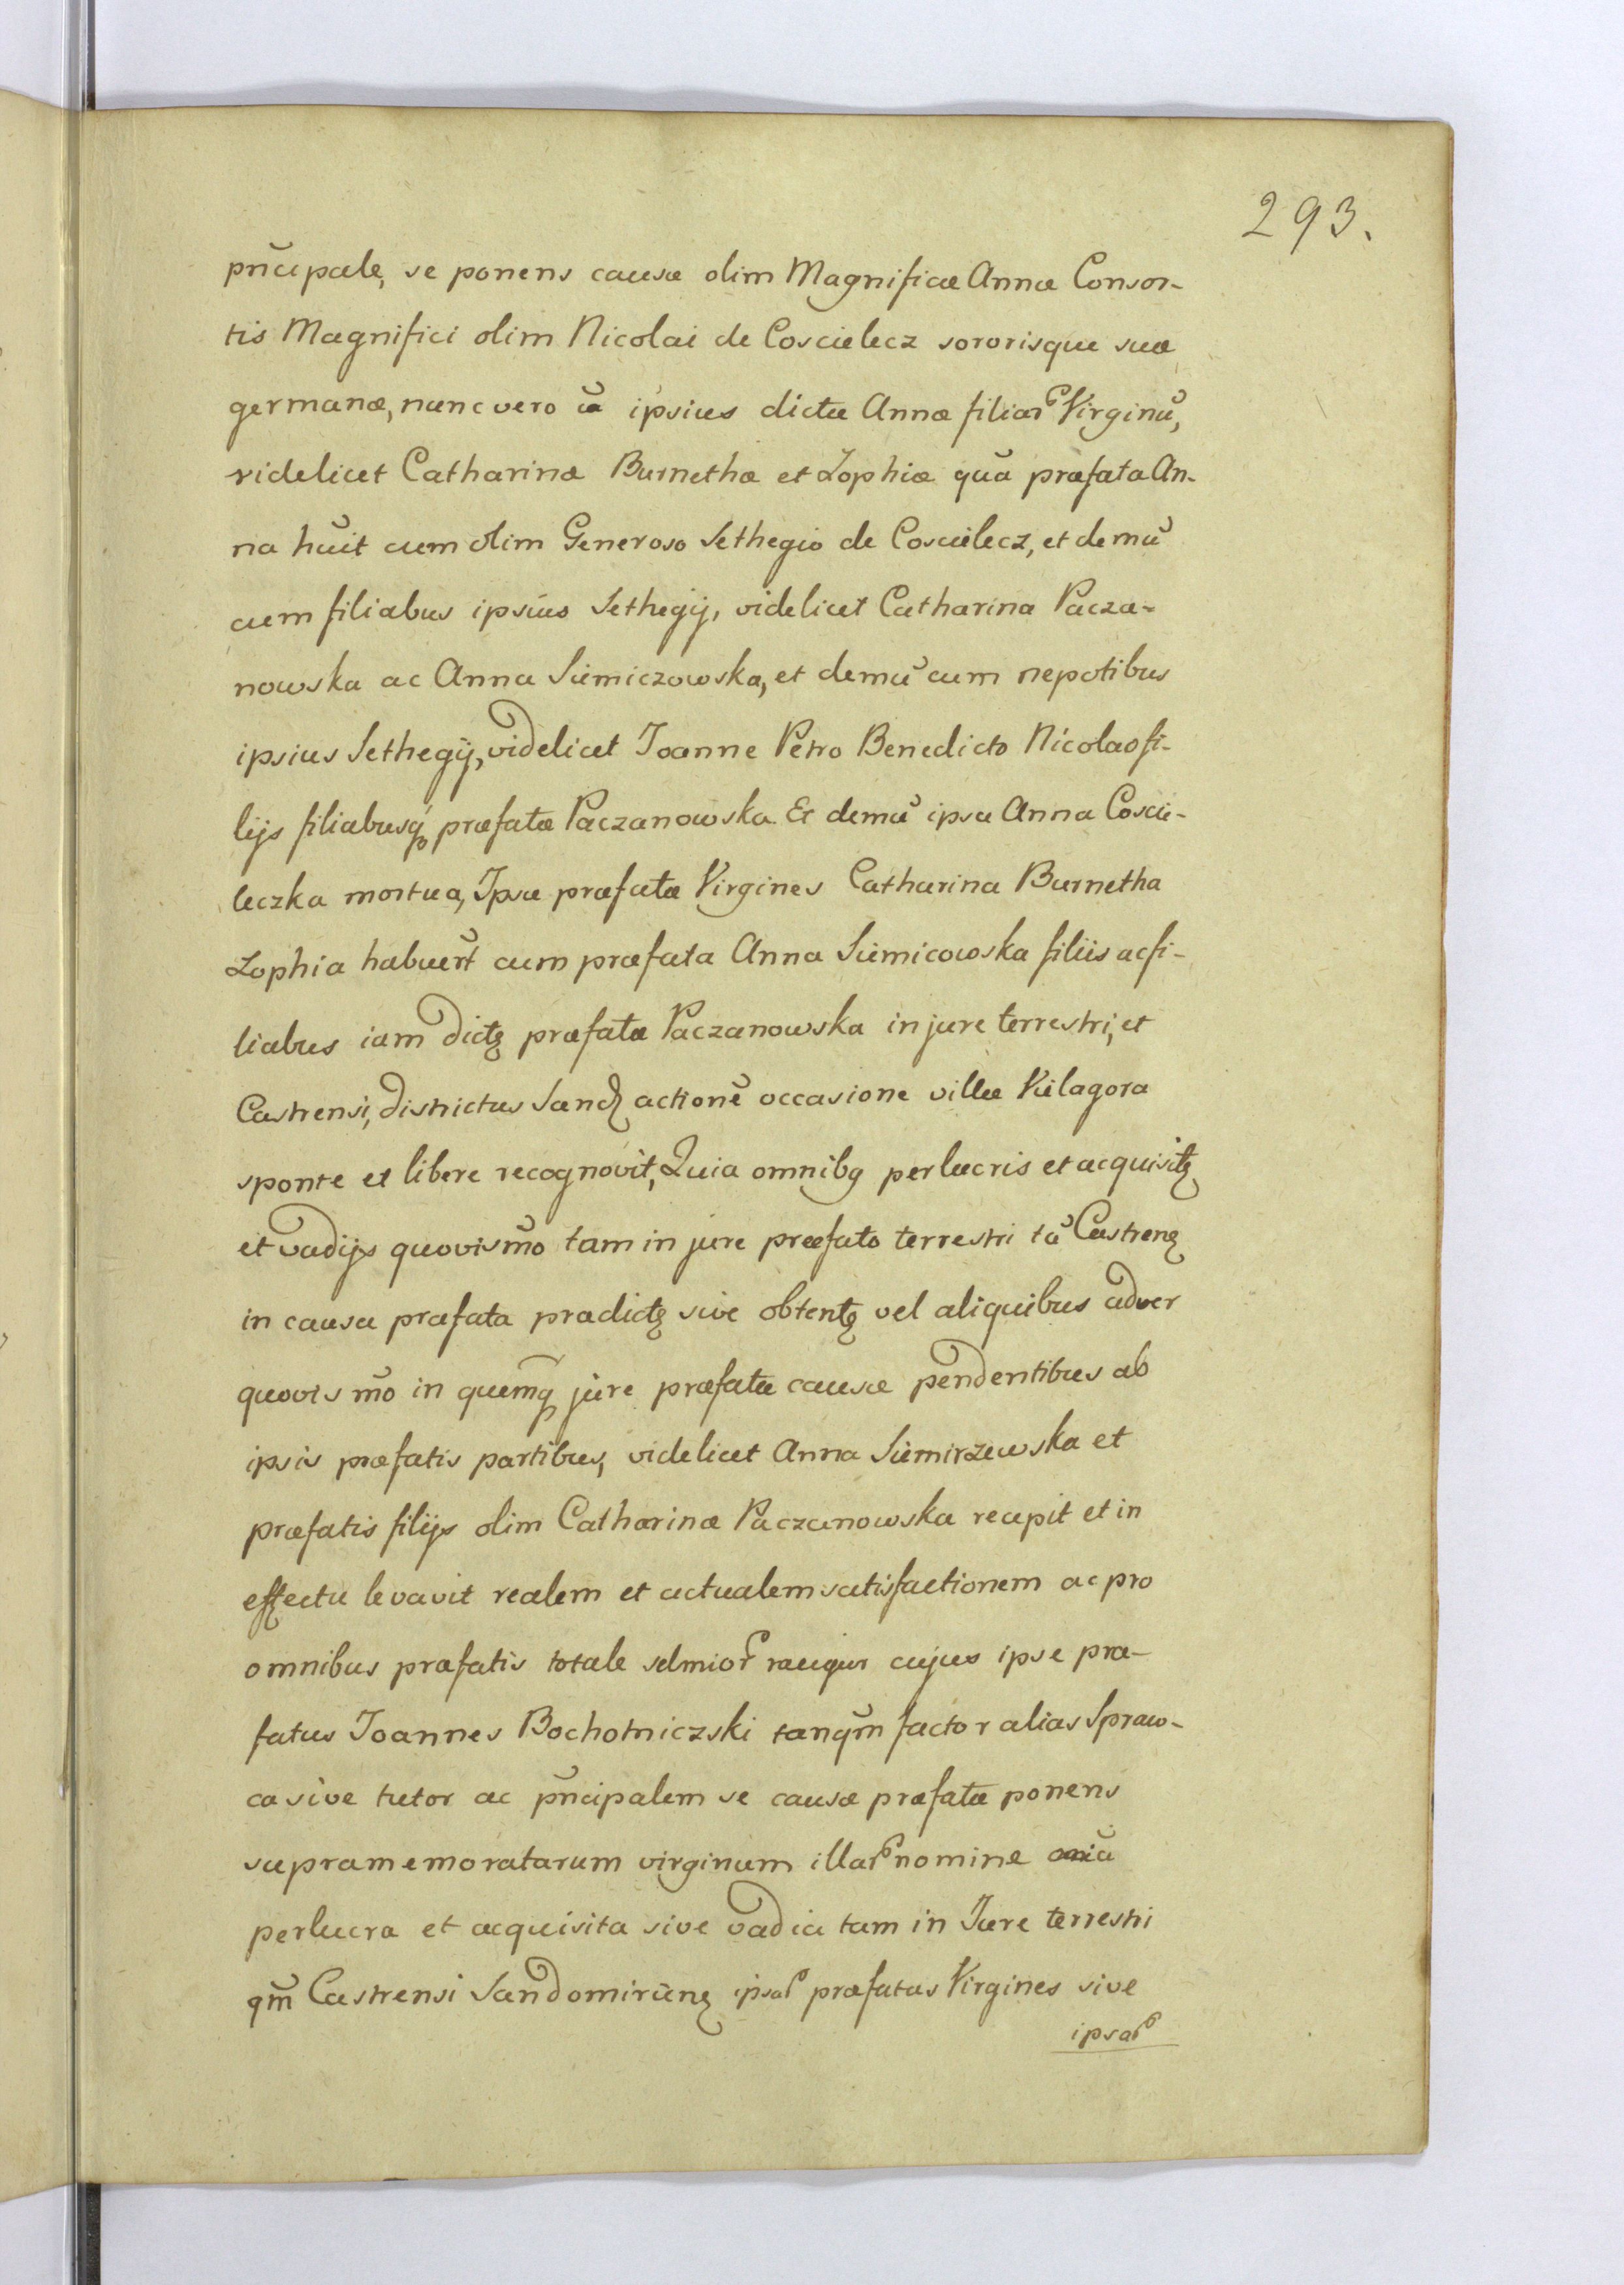 293.
pñcipale, se ponens causæ olim Magnificæ Annæ Consor-
tis Magnifici olim Nicolai de Coscielecz sororisque suæ
germanæ, nunc vero ipsius dictæ Annæ filiar Virginū,
videlicet Catharinæ Burnethæ et Zophiæ quā præfata An-
na hūit cum olim Generoso Sethegio de Coscielecz, et demū
cum filiabus ipsius Sethegij, videlicet Catharina Pacza-
nowska ac Anna Siemiczowska, et demū cum nepotibus
ipsius Sethegij, videlicet Joanne Petro Benedicto Nicolao fi-
lijs filiabusq præfatæ Paczanowska Et demū ipsa Anna Coscie-
leczka mortua, Ipsæ præfatæ Virgines Catharina Burnetha
Zophia habuert cum præfata Anna Siemicowska filiis ac fi-
liabus iam dictę præfatæ Paczanowska in jure terrestri, et
Castrensi, districtus Sand actionē occasione villæ Kielagora
sponte et libere recognovit, Quia omnibq perlucris et acquisitę
et vadijs quovis mō tam in jure præfato terrestri tā Castrenę
in causa præfata prædictę sive obtentę vel aliquibus adver
quovis mō in quemq jure præfatæ causæ pendentibus ab
ipsis præfatis partibus, videlicet Anna Siemirzewska et
præfatis filijs olim Catharinæ Paczanowska recepit et in
effectu levavit realem et actualem satisfactionem ac pro
omnibus præfatis totale cujus ipse præ-
fatus Joannes Bochotniczski tanqm̄ factor alias Spraw-
ca sive tutor ac pñcipalem se causæ præfatæ ponens
supramemoratarum virginum illar nomine
perlucra et acquisita sive vadia tam in Jure terrestri
qm̄ Castrensi Sandomirienę ipsar præfatas Virgines sive
ipsar